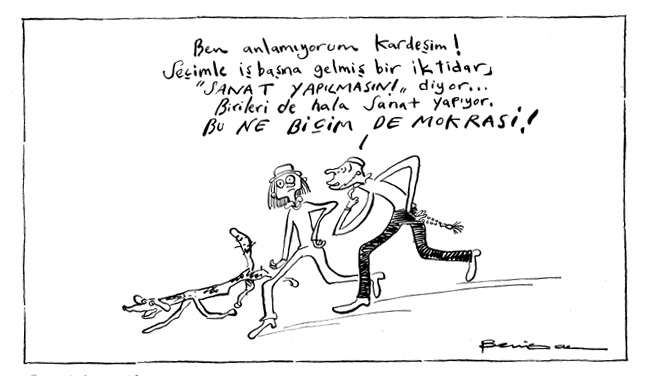 Ben anlamıyorum kardeşim!
Seçimle işbaşına gelmiş bir iktidar,
"SANAT YAPILMASIN!" diyor...
Birileri de hala sanat yapıyor.
BU NE BİÇİM DEMOKRASİ!